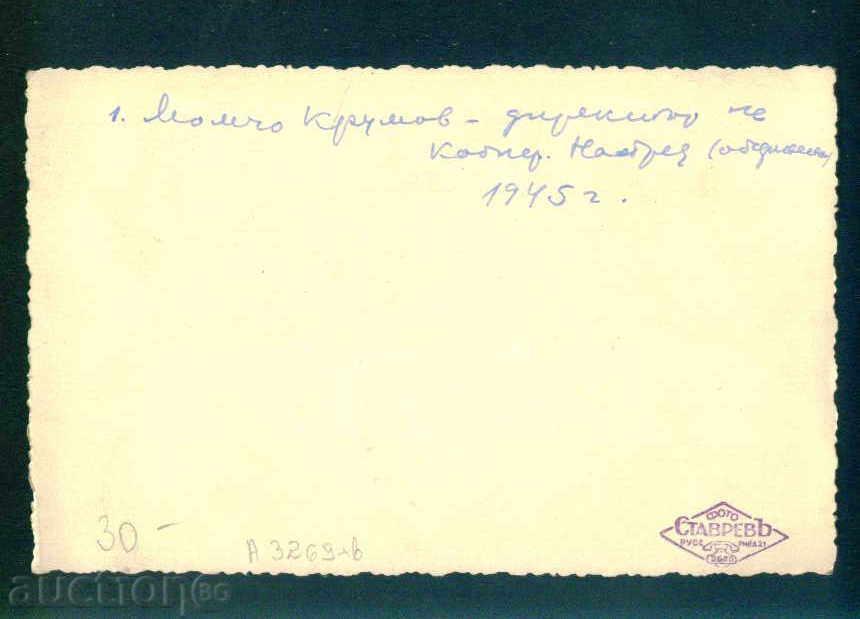 1. Момчо Крумов - директор на
Коопер. Напред (обединена)
1945 г.
30 -
А 3269-в
ФОТО
СТАВРЕВЪ
РУСЕ
auction BG